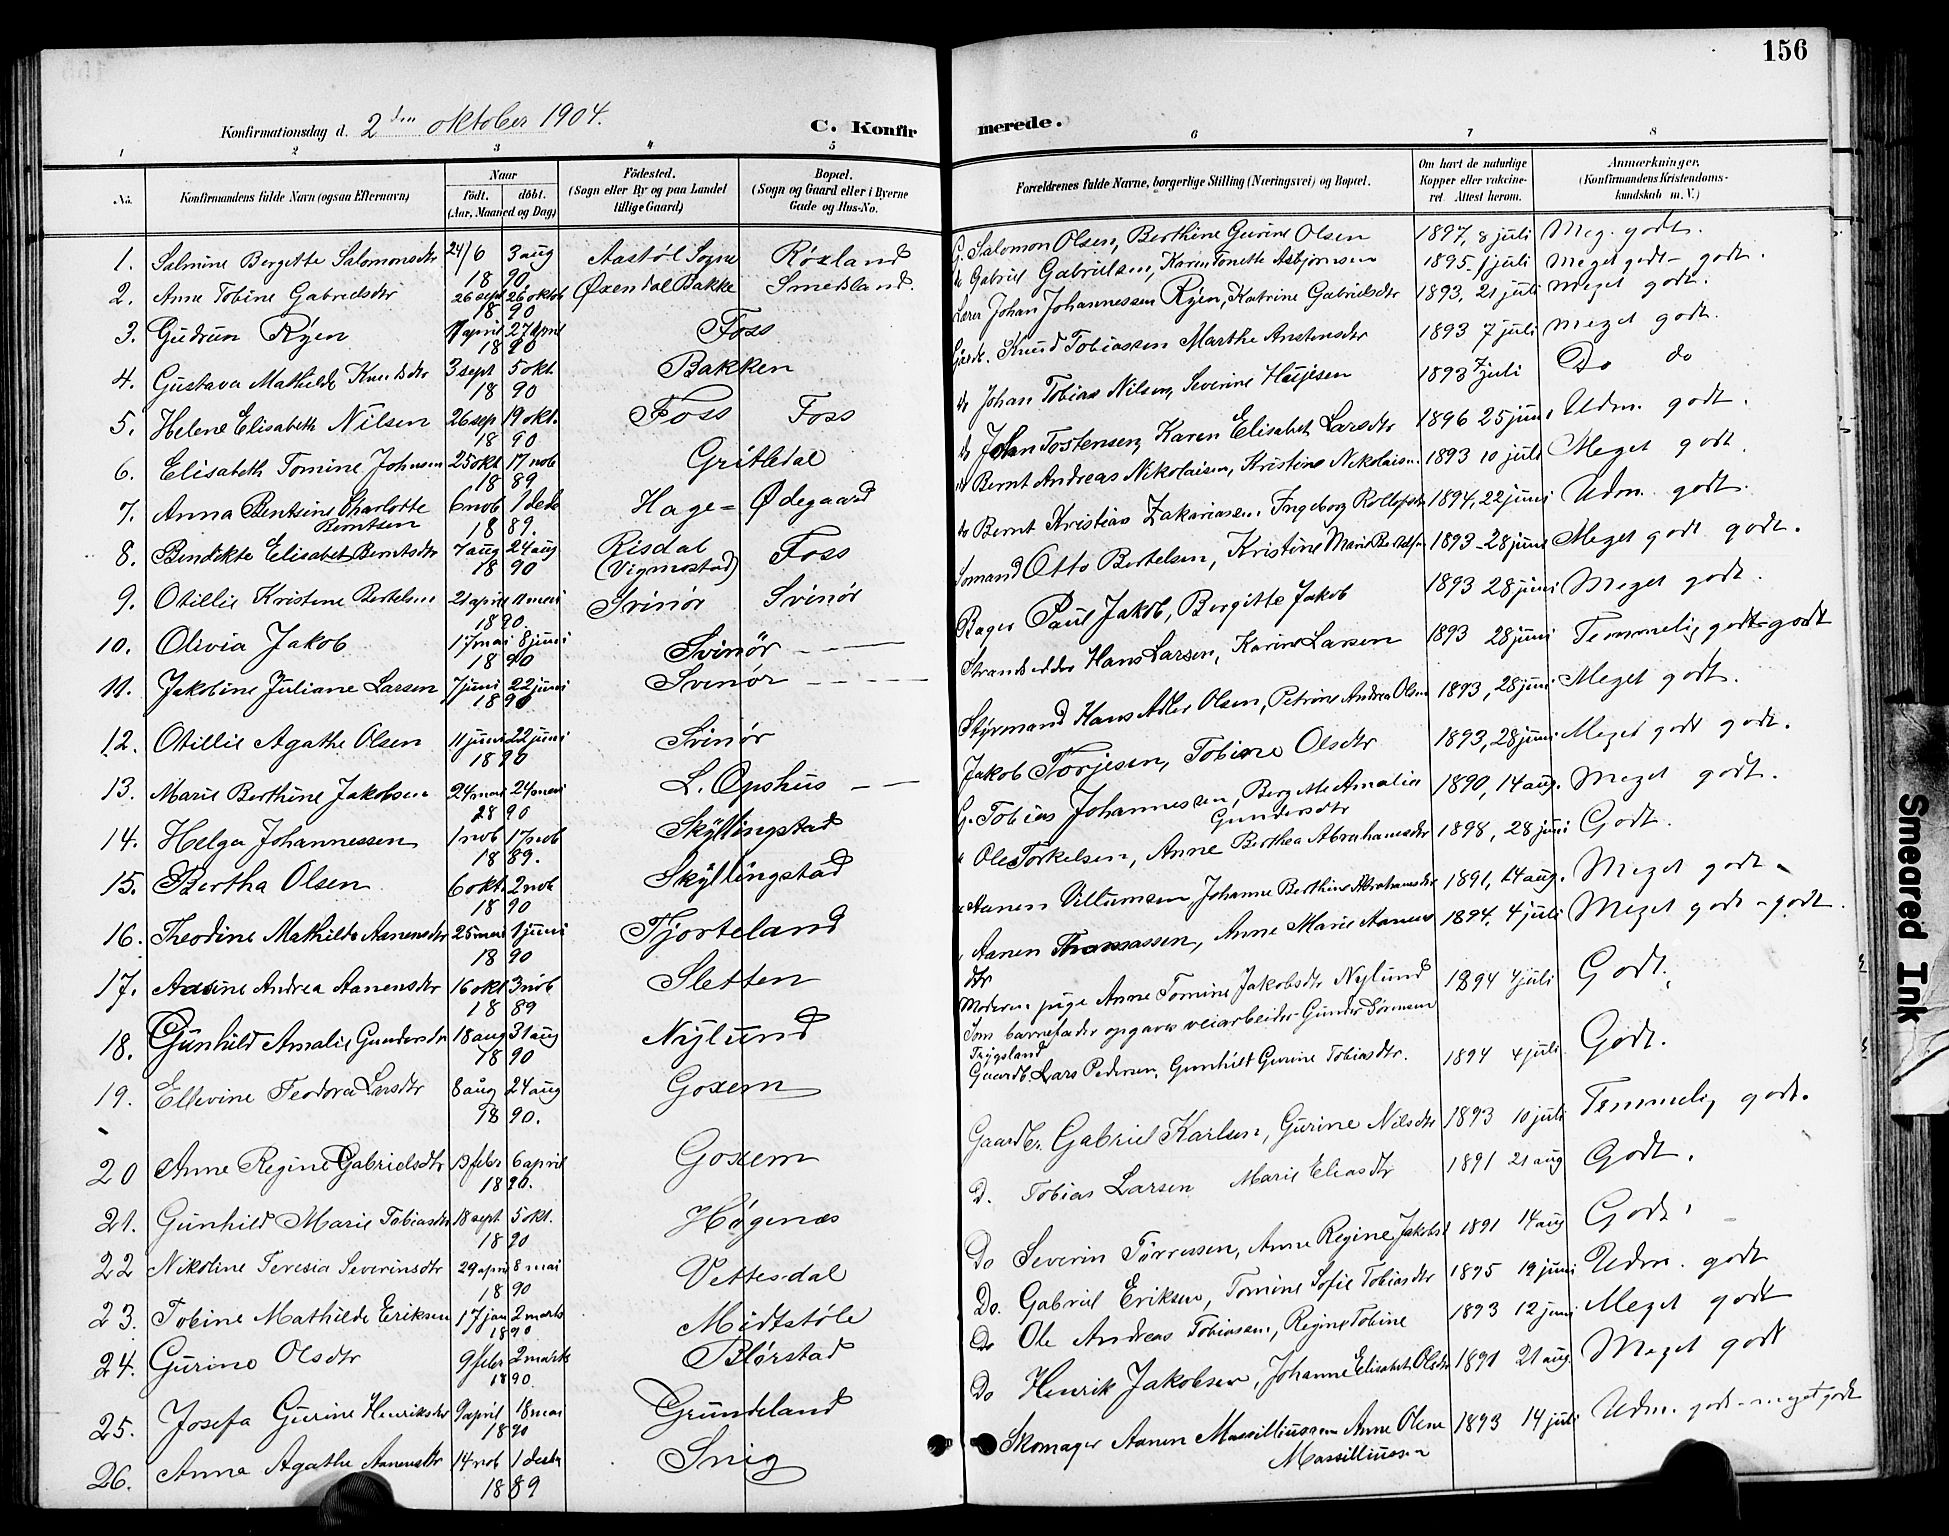 156
Konfirmationsdag d. 2den oktober 1904.
C. Konfirmerede.
1 2 3 4 5 6 7 8
No. Konfirmandens fulde Navn (ogsaa Efternavn) Naar født. døbt. (Aar, Maaned og Dag) Fødested. (Sogn eller By og paa Landet tillige Gaard) Bopæl. (Sogn og Gaard eller i Byerne Gade og Hus-No. Forældrenes fulde Navne, borgerlige Stilling (Næringsvei) og Bopæl. Om havt de naturlige Kopper eller vakcineret Attest herom. Anmærkninger, (Konfirmandens Kristendomskundskab m. V.)
1. Salmine Bergitte Salomonsdtr 24/6 3 aug 1890 Aastøl Sogne Røxland G. Salomon Olsen, Berthine Gurine Olsen 1897, 8 juli Meg. godt.
2. Anne Tobine Gabrielsdtr 26 sept 26 oktob 1890 Øxendal Bakke Smedsland. do Gabriel Gabrielsen, Karen Tonette Asbjørnsen 1895 - 1 juli Meget godt - godt.
3. Gudrun Rÿen 11 april 27 april 1890 Foss Lærer Johan Johannessen Rÿen, Katrine Gabrielsdtr 1893, 21 juli Meget godt.
4. Gustava Mathilde Knudsdtr 3 sept 5 okt 1890 Bakken Gaardb. Knud Tobiassen Marthe Anstensdtr 1893 7 juli Meget godt.
5. Helene Elisabeth Nilsen 26 sep 19 okt. 1890 Foss Foss do Johan Tobias Nilsen, Severine 1893 7 juli Do do
6. Elisabeth Tomine Johnsen 25 okt 17 nob 1889 Gritledal do John Tostensen, Karen Elisabet Larsdtr 1896 25 juni Udm. godt.
7. Anna Bentsine Charlotte Berntsen 6 nob 1 desb 1889. Hage - Ødegaard do Bernt Andreas Nikolaisen, Kristine Nikolaisen 1893 10 juli Meget godt.
8. Bendikte Elisabet Berntsdtr 7 aug 24 aug 1890 Risdal (Vigmostad) Foss do Bernt Kristian Zakariassen Ingeborg Rollefsdtr 1894, 22 juni Udm. godt.
9. Otillie Kristine Bertelsen 21 april 11 mai 1890. Svinør Svinør Sømand Otto Bertelsen, Kristine Marie Bertelsen 1893 - 28 juni Meget godt godt.
10. Olivia Jakob 17 mai 8 juni 1890 Svinør Bager Paul Jakob, Bergitte Jakob 1893 28 juni Meget godt.
11. Jakobine Juliane Larsen 7 juni 22 juni 1890 Svinør Strandsidder Hans Larsen, Karine Larsen 1893 28 juni Temmelig godt - godt
12. Otillie Agathe Olsen 11 juni 22 juni 1890 Svinør Styrmand Hans Adler Olsen, Petrine Andrea Olsen 1893, 28 juni Meget godt.
13. Marie Berthine Jakobsen 24 mai 24 mai 2890 L. Opshus Jakob Torjesen, Tobine Olsdtr 1893, 28 juni Meget godt godt.
14. Helga Johannessen 1 nob 17 nob 1889. Skÿllingstad G. Tobias Johannessen, Bergitte Amalia Gundersdtr 1890, 14 aug. Meget godt.
15. Bertha Olsen 6 okt. 2 nob 1890 Skÿllingstad Ole Torkelsen, Anne Berthea Abrahamsdtr 1898, 28 juni Godt.
16. Theodine Mathilde Aanensdtr 25 mai 1 juni 1890 Fjorteland Aanen Villumsen, Johanne Berthine Abrahamsdtr 1891, 14 aug. Meget godt
17. Aasine Andrea Aanensdtr 16 okt 3 nob 1889 Sletten Aanen Thomassen, Anne Marie Aanensdtr 1894. 4 juli Meget godt - godt.
18. Gunhild Amalie Gundersdtr 18 aug 31 aug 1890 Nÿlund Moderen pige Anne Tomine Jakobsdtr Nylund 1894 4 juli Godt.
Som barnefader opgaves veiarbeider Gunder Sørensen Trygsland
19. Ellevine Teodora Larsdtr 8 aug 24 aug 1890. Goxem Gaardb. Lars Pedersen, Gunhild Gurine Tobiasdtr. 1894 4 juli Godt.
20 Anne Regine Gabrielsdtr 13 febr 6 april 1890. Goxem Gaardbr. Gabriel Karlsen, Gurine Nilsdtr 1893 10 juli Temmelig godt.
21. Gunhild Marie Tobiasdtr 18 sept 5 okt. 1890 Høgenæs D. Tobias Larsen Marie Eliasdtr 1891 21 aug Godt.
22 Nikoline Teresia Severinsdtr 29 april 8 mai 1890 Vettesdal Do Severin Tørressen, Anne Regine Jakobsd 1891 14 aug Godt.
23. Tobine Mathilde Eriksen 17 jan 2 marts 1890 Midtstøle Do. Gabriel Eriksen, Tomine Sofie Tobiasdtr 1895 19 juni Udm. godt
24. Gurine Olsdtr 9 febr 2 marts 1890. Blørstad Do Ole Andreas Tobiassen, Regine Tobine 1893 12 juni Meget godt
25. Josefa Gurine Henriksdtr 9 april 18 mai 1890 Grundeland Do Henrik Jakobsen, Johanne Elisabet Olsdtr 1891 21 aug. Meget godt
26. Anna Agathe Aanensdtr 14 nob 1 desbr 1889 Snig Skomager Aanen Massilliussen Anne Olene Massilliussen 1893 14 juli Udm. godt - meget godt
Smeared Ink